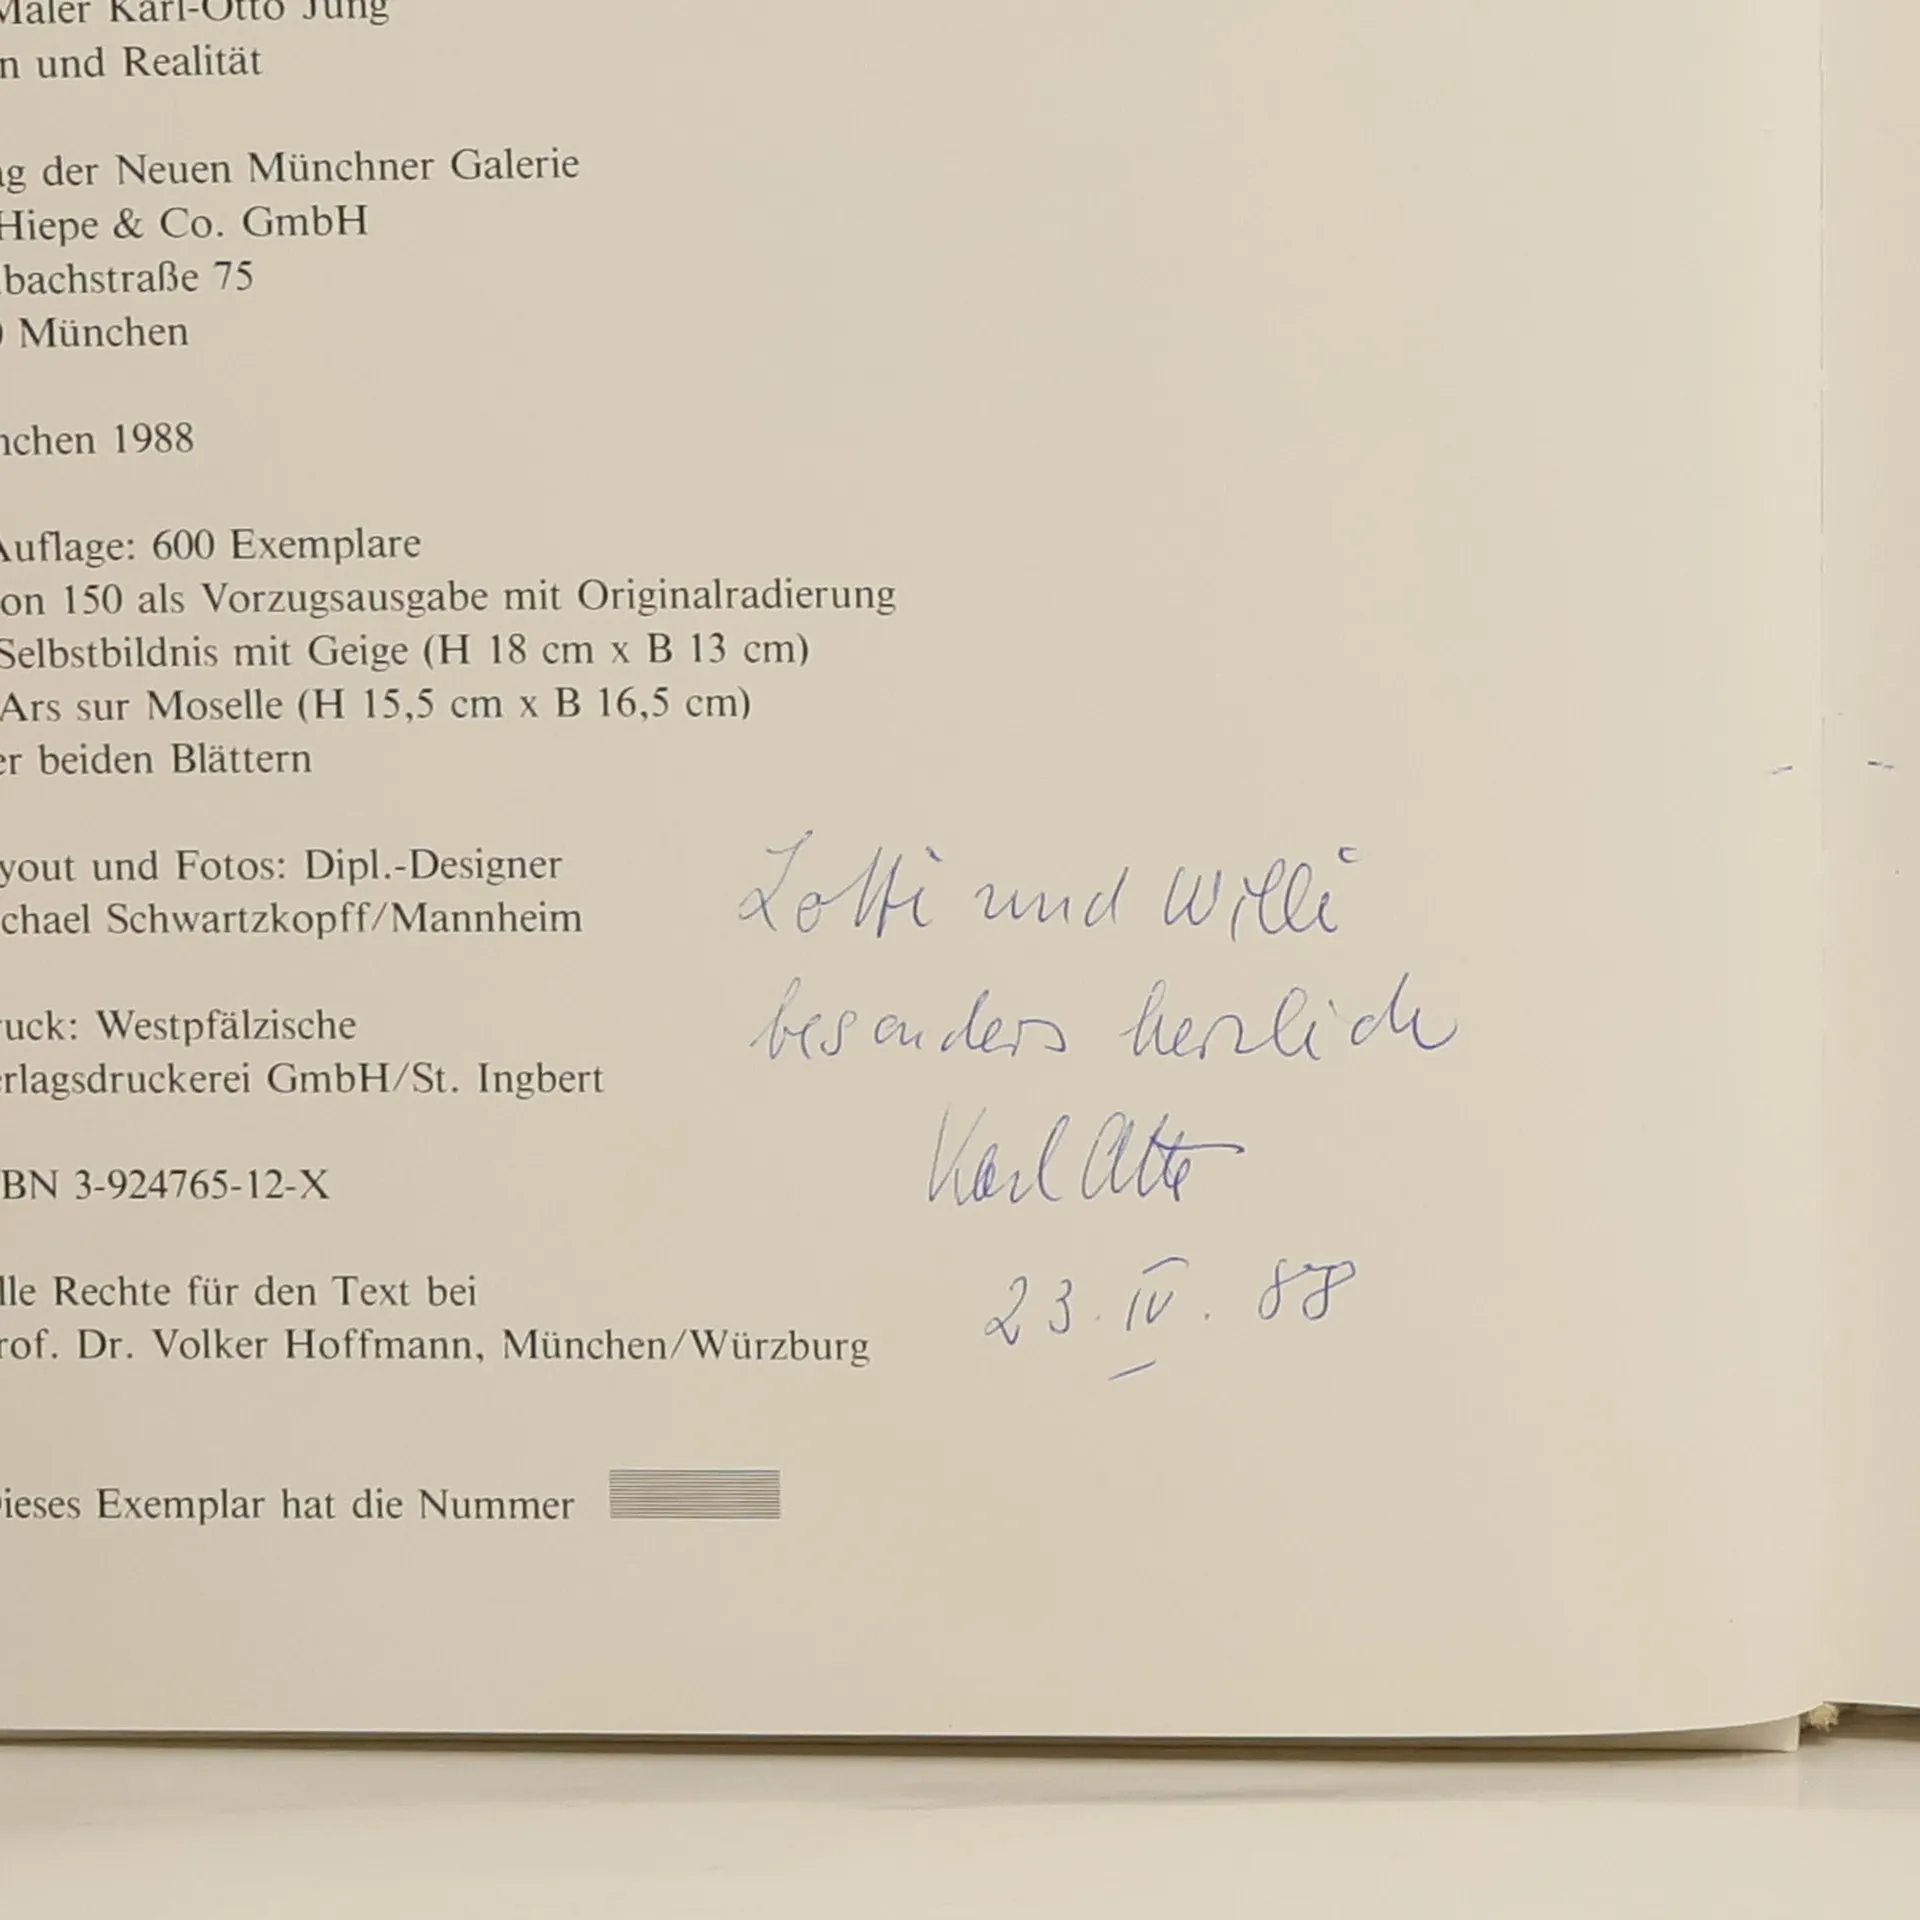 Maler Karl-Otto Jung
n und Realität
ag der Neuen Münchner Galerie
Hiepe & Co. GmbH
bachstraße 75
0 München
nchen 1988
Auflage: 600 Exemplare
on 150 als Vorzugsausgabe mit Originalradierung
Selbstbildnis mit Geige (H 18 cm x B 13 cm)
Ars sur Moselle (H 15,5 cm x B 16,5 cm)
er beiden Blättern
yout und Fotos: Dipl.-Designer
chael Schwartzkopff/Mannheim
ruck: Westpfälzische
erlagsdruckerei GmbH/St. Ingbert
BN 3-924765-12-X
lle Rechte für den Text bei
rof. Dr. Volker Hoffmann, München/Würzburg
ieses Exemplar hat die Nummer
Lotti und Willi
besonders herzlich
Karl Otto
23. IV. 88